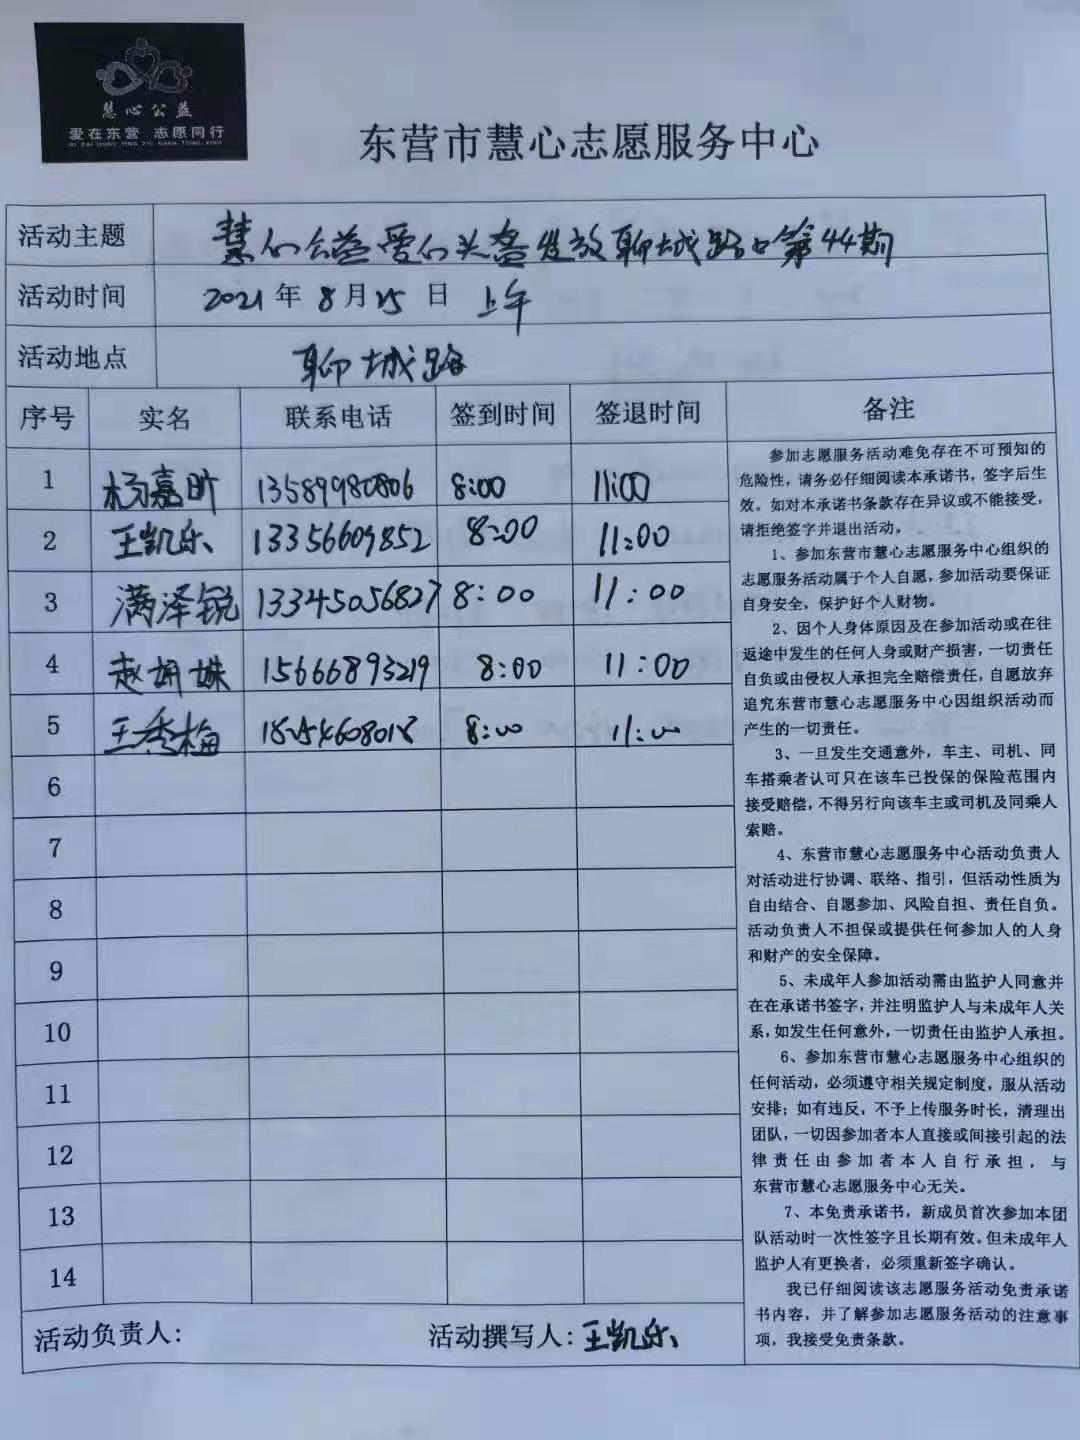 慧心公益
爱在东营 志愿同行
AI ZAI DONG YING ZHI YUAN TONG XING
东营市慧心志愿服务中心
活动主题 慧心公益爱心头盔发放聊城路口第44期
活动时间 2021年8月25日 上午
活动地点 聊城路
序号 实名 联系电话 签到时间 签退时间 备注
1 杨嘉昕 13589980806 8:00 11:00
2 王凯乐 13356609852 8:00 11:00
3 满泽锐 13345056827 8:00 11:00
4 赵姝 15666893219 8:00 11:00
5 王秀梅 18254608018 8:00 11:00
6
7
8
9
10
11
12
13
14
参加志愿服务活动难免存在不可预知的
危险性，请务必仔细阅读本承诺书，签字后生
效。如对本承诺书条款存在异议或不能接受，
请拒绝签字并退出活动，
1、参加东营市慧心志愿服务中心组织的
志愿服务活动属于个人自愿，参加活动要保证
自身安全，保护好个人财物。
2、因个人身体原因及在参加活动或在往
返途中发生的任何人身或财产损害，一切责任
自负或由侵权人承担完全赔偿责任，自愿放弃
追究东营市慧心志愿服务中心因组织活动而
产生的一切责任。
3、一旦发生交通意外，车主、司机、同
车搭乘者认可只在该车已投保的保险范围内
接受赔偿，不得另行向该车主或司机及同乘人
索赔。
4、东营市慧心志愿服务中心活动负责人
对活动进行协调、联络、指引，但活动性质为
自由结合、自愿参加、风险自担、责任自负。
活动负责人不担保或提供任何参加人的人身
和财产的安全保障。
5、未成年人参加活动需由监护人同意并
在在承诺书签字，并注明监护人与未成年人关
系，如发生任何意外，一切责任由监护人承担。
6、参加东营市慧心志愿服务中心组织的
任何活动，必须遵守相关规定制度，服从活动
安排；如有违反，不予上传服务时长，清理出
团队，一切因参加者本人直接或间接引起的法
律责任由参加者本人自行承担，与
东营市慧心志愿服务中心无关。
7、本免责承诺书，新成员首次参加本团
队活动时一次性签字且长期有效。但未成年人
监护人有更换者，必须重新签字确认。
我已仔细阅读该志愿服务活动免责承诺
书内容，并了解参加志愿服务活动的注意事
项，我接受免责条款。
活动负责人： 活动撰写人：王凯乐